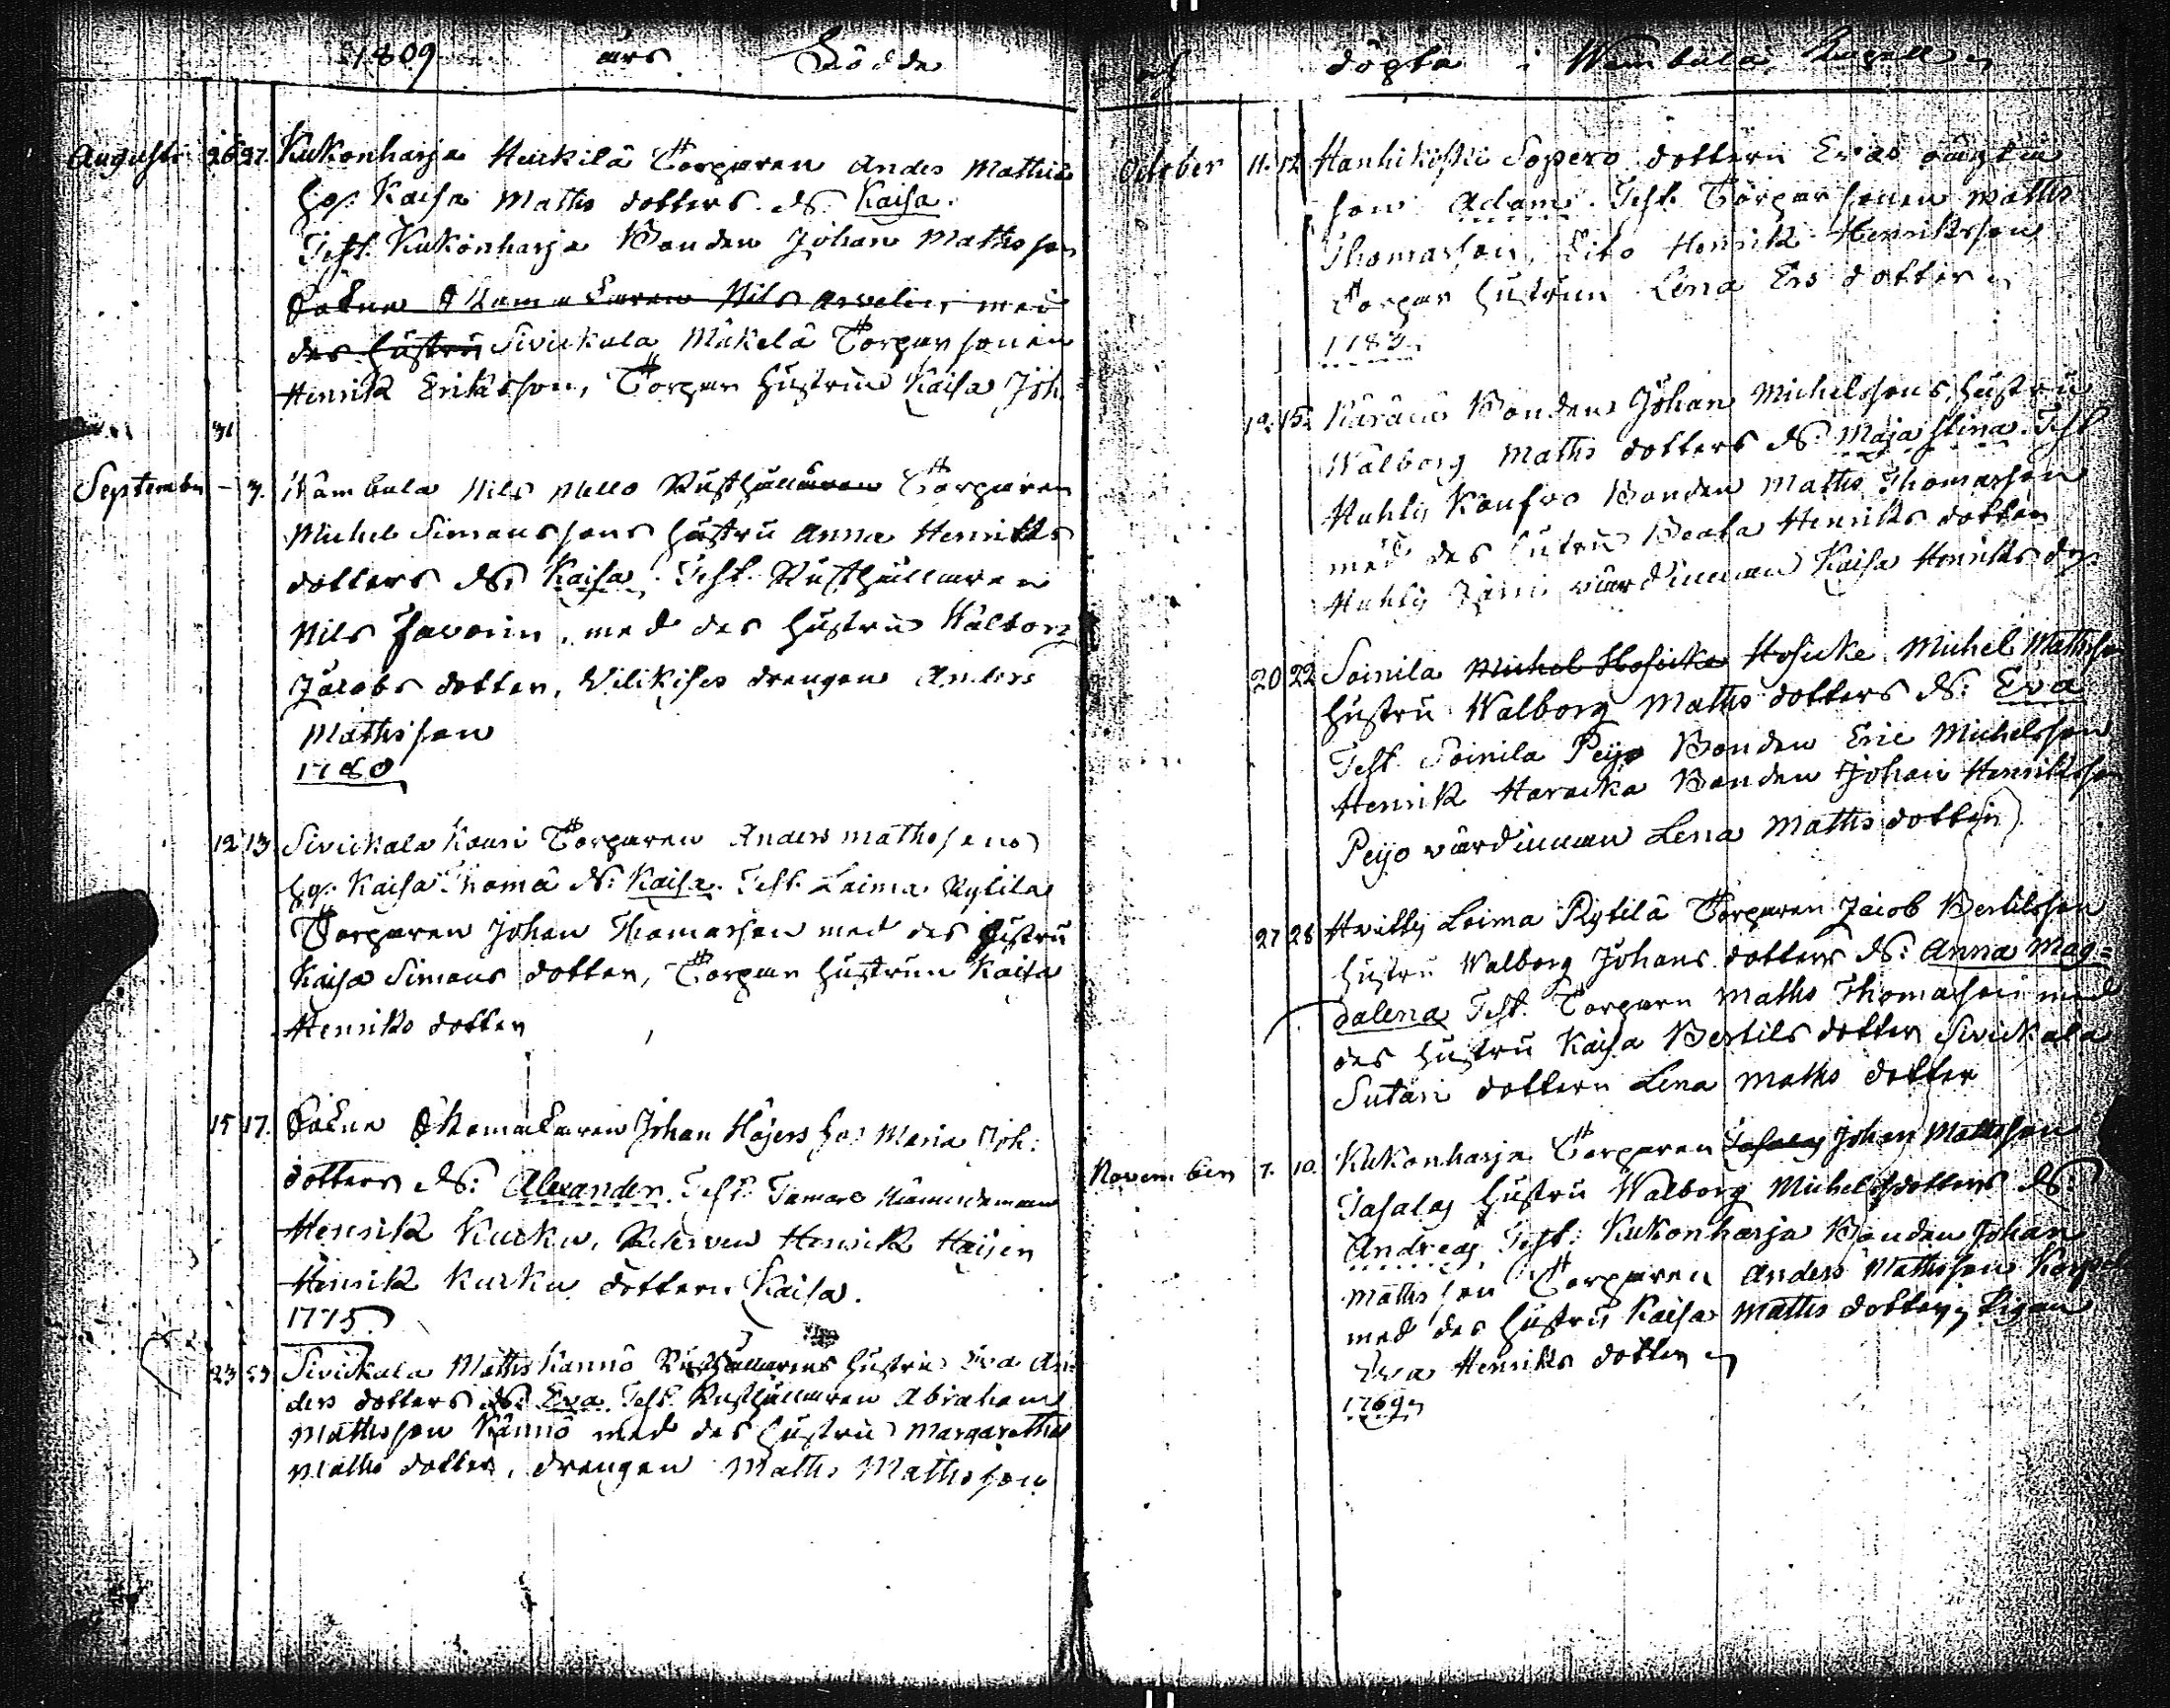 1809 års Födde
Augusti 26 27. Kukonharja Heickilä Torparen Anders Mattss
hs: Kaisa Matts dotters db: Kaisa.
Test. Kukonharja Bonden Johan Mattsson
Sokne Skomakaren Nils Arvelin med
des hustru Sivickala Mäkelä Torparsonen
Henrik Eriksson, Torpar hustrun Kaisa Joh.
31
September – 3. Wämbula Nils Rusthållaren Torparen
Michel Simonssons hustru Anna Henriks
dotters db: Kaisa. Test. Rusthållaren
Nils Favorin, med des hustru Walborg
Jacobs dotter, drengen Anders
Mathsson
1780
12 13 Sivickala Kauri Torparen Anders Mathssons
hs: Kaisa Thoma db: Kaisa. Test. Leima Rytilä
Torparen Johan Thomasson med des hustru
Kaisa Simons dotter, Torpar hustrun Kaisa
Henriks dotter
15 17. Sokne Skomakaren Johan Höjers hs: Maria Joh:
dotters db: Alexander. Test. Nämndeman
Henrik Kurku, Henrik
Henrik Kurku dottern Kaisa.
1775
23 Sivickala Matts Kannö Rusthållarens hustru Eva An-
ders dotters db: Eva. Test. Rusthållaren Abraham
Mattsson Kännö med des hustru Margaretha
Matts dotter, drengen Matts Mathsson
och döpta i Wambula Capell
October 11. 12 Hanhikoski Sopero dottern Evas oägta
son Adam. Test. Torparsonen Matts
Thomasson, Dito Henrik Henriksson
Torpar hustrun Lena Ers dotter
1783.
15. Bonden Johan Michelssons hustru
Wålborg Matts dotters db: Maja Stina. Test
Huhty Bonden Matts Thomasson
med des hutru Beata Henriks dotter
Huhty värdinnan Kaisa Henriks do:
20 22 Soinila Michel Hosicka Hosicke Michel Mathss
hustru Walborg Matts dotters db: Eva
Test. Soinila Peijo Bonden Eric Michelsson
Henrik Haracka Bonden Johan Henriksso
Peijo värdinnan Lena Matts dotter
27 28 Leima Rytilä Torparen Jacob Bertilsson
hustru Walborg Johans dotters db: Anna Mag=
dalena Test. Torparn Matts Thomasson med
des hustru Kaisa Bertils dotter Sivickala
Sutari dottern Lena Matts dotter
November 7. 10. Kukonharja Torparen Johan Mattsson
Tasala hustru Walborg Michelsdotters db:
Andreas Test. Kukonharja Bonden Johan
Mattsson Torparen Anders Mattsson
med des hustru Kaisa Matts dotter, Pigan
Eva Henriks dotter
1769